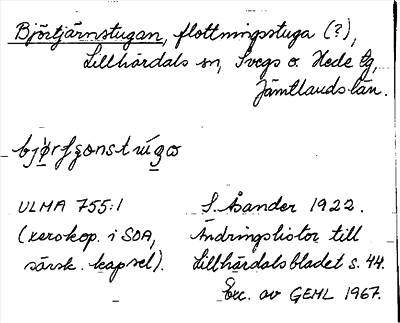 Björtjärnstugan, flottningsstuga (?),
Lillhärdals sn, Svegs o Hede tg,
Jämtlands län.
bjørfʂonstúgo
ULMA 755:1
(xerokop. i SOA,
särsk. kapsel).
S. Åsander 1922.
Ändringslistor till
Lillhärdalsbladet s. 44.
Exc. av GEHL 1967.